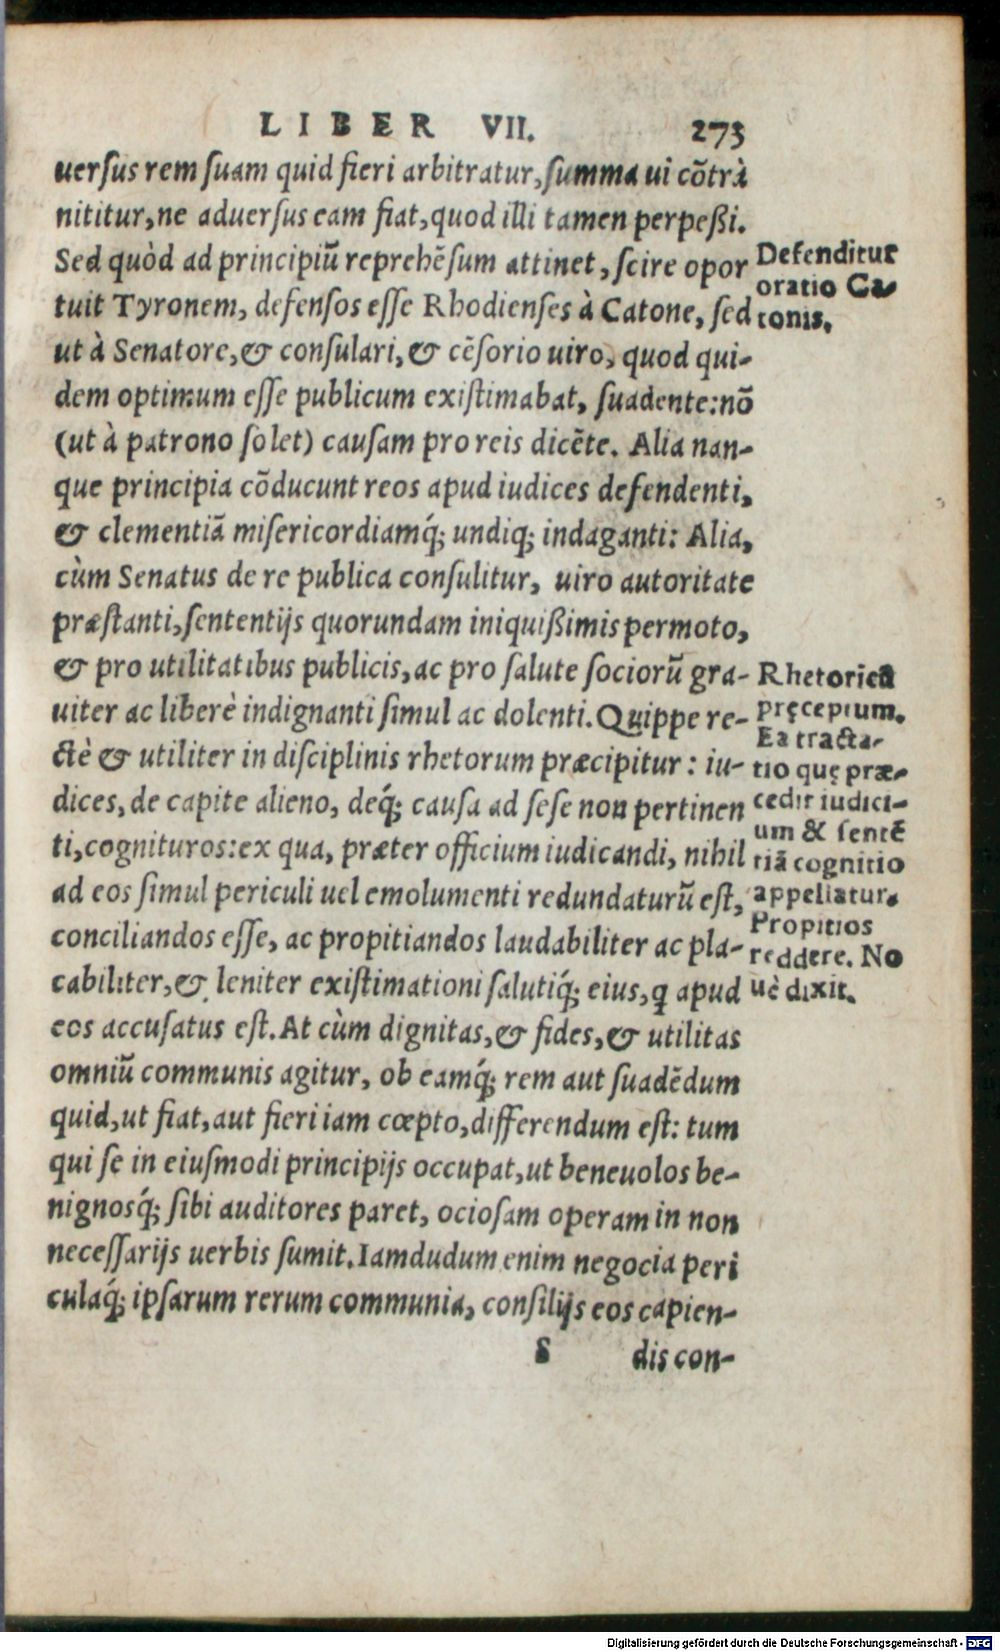 LIBER VII. 273
uersus rem suam quid fieri arbitratur, summa ui cõtrà
nititur, ne aduersus eam fiat, quod illi tamen perpeßi.
Sed quòd ad principiũ reprehẽsum attinet, scire opor
tuit Tyronem, defensos esse Rhodienses à Catone, sed
ut à Senatore, & consulari, & cẽsorio uiro, quod qui-
dem optimum esse publicum existimabat, suadente: nõ
(ut à patrono solet) causam pro reis dicẽte. Alia nan-
que principia cõducunt reos apud iudices defendenti,
& clementiã misericordiamq́; undiq; indaganti: Alia,
cùm Senatus de re publica consulitur, uiro autoritate
præstanti, sententijs quorundam iniquißimis permoto,
& pro utilitatibus publicis, ac pro salute sociorũ gra-
uiter ac liberè indignanti simul ac dolenti. Quippe re-
ctè & utiliter in disciplinis rhetorum præcipitur: iu-
dices, de capite alieno, deq́; causa ad sese non pertinen
ti, cognituros: ex qua, præter officium iudicandi, nihil
ad eos simul periculi uel emolumenti redundaturũ est,
conciliandos esse, ac propitiandos laudabiliter ac pla-
cabiliter, & leniter existimationi salutiq́; eius, q apud
eos accusatus est. At cùm dignitas, & fides, & utilitas
omniũ communis agitur, ob eamq́; rem aut suadẽdum
quid, ut fiat, aut fieri iam cœpto, differendum est: tum
qui se in eiusmodi principijs occupat, ut beneuolos be-
nignosq́; sibi auditores paret, ociosam operam in non
necessarijs uerbis sumit. Iamdudum enim negocia peri
culaq́; ipsarum rerum communia, consilijs eos capien-
S dis con-
Defenditur
oratio Ca-
tonis.
Rhetoricũ
pręceptum.
Ea tracta-
tio quę præ-
cedit iudici-
um & sentẽ
tiã cognitio
appellatur.
Propitios
reddere. No
uè dixit.
Digitalisierung gefördert durch die Deutsche Forschungsgemeinschaft - DFG